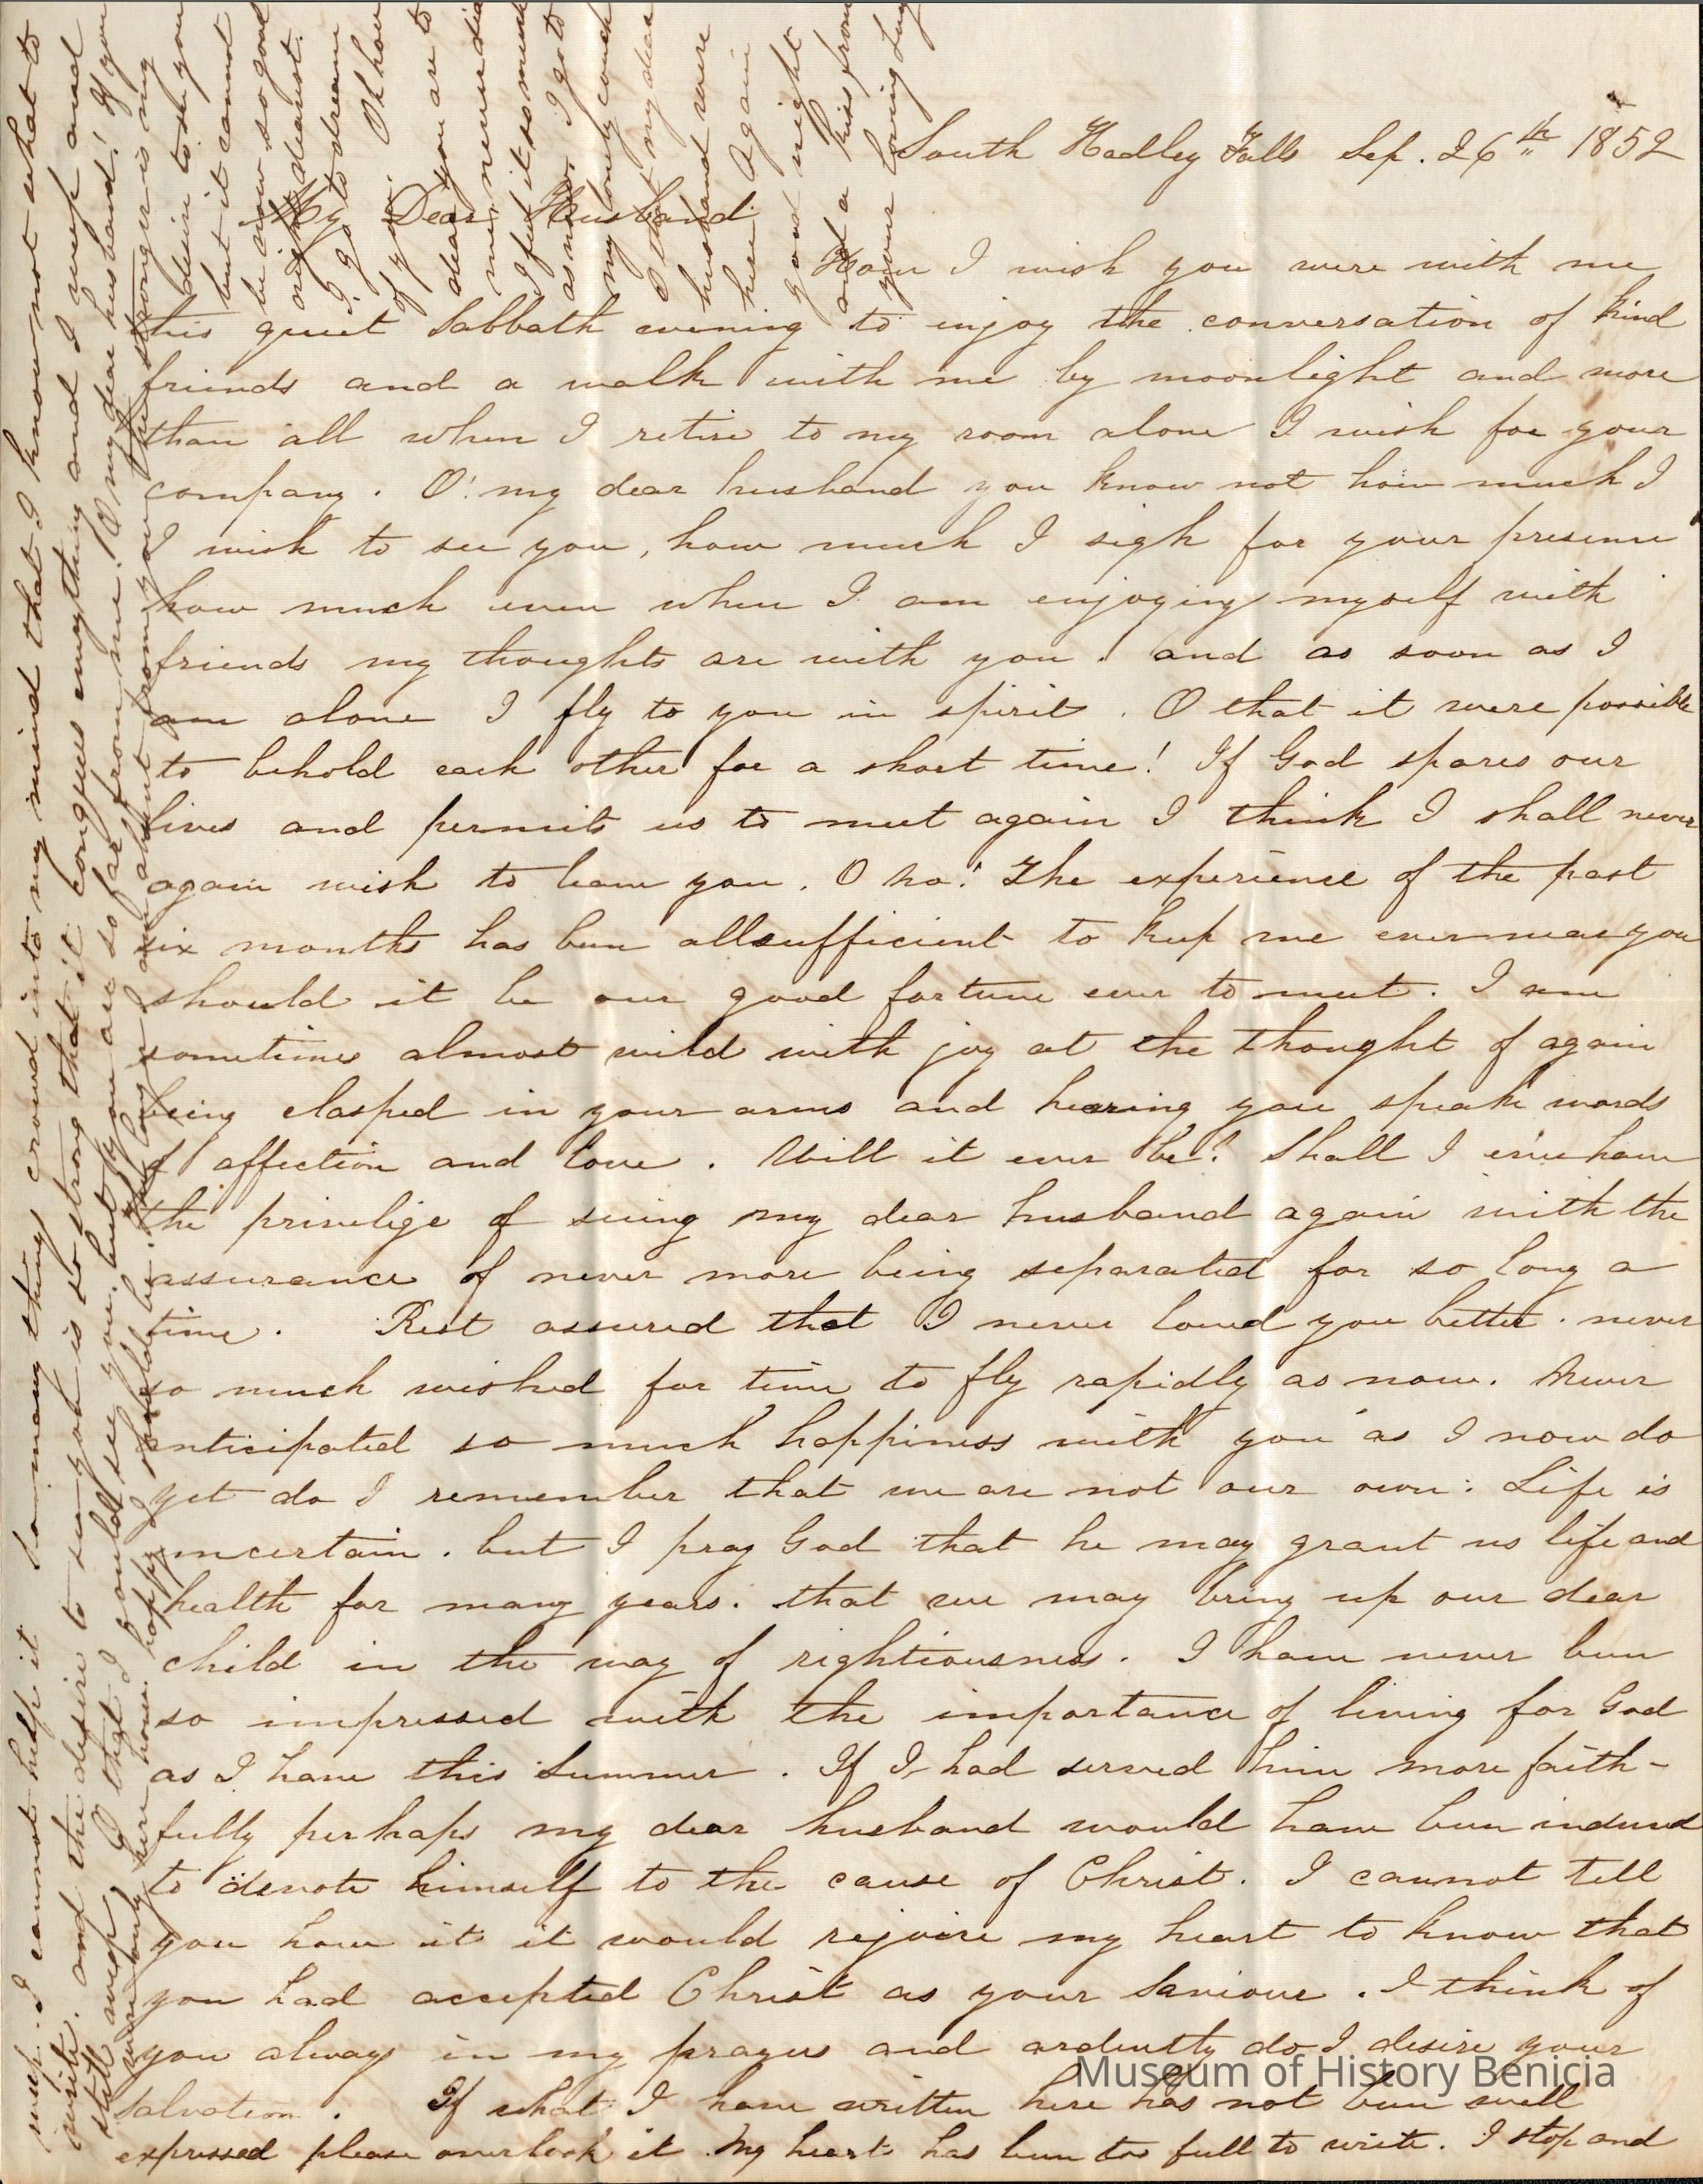 South Hadley Falls Sep. 26th 1852
My Dear Husband
How I wish you were with me
this quiet Sabbath evening to enjoy the conversation of kind
friends and a walk with me by moonlight and more
than all when I retire to my room alone I wish for your
company. O! my dear husband you know not how much I
I wish to see you, how much I sigh for your presence
how much even when I am enjoying myself with
friends my thoughts are with you. and as soon as I
am alone I fly to you in spirit. O that it were possible
to behold each other for a short time! If God spares our
lives and permits us to meet again I think I shall never
again wish to leave you. O no! The experience of the past
six months has been allsufficient to keep me ever near you
should it be our good fortune ever to meet. I am
sometimes almost wild with joy at the thought of again
being clasped in your arms and hearing you speak words
of affection and love. Will it ever be? Shall I ever have
the privilige of seeing my dear husband again with the
assurance of never more being separated for so long a
time. Rest assured that I never loved you better. never
so much wished for time to fly rapidly as now. Never
anticipated so much happiness with you as I now do
yet do I remember that we are not our own: Life is
uncertain. but I pray God that he may grant us life and
health for many years. that we may bring up our dear
child in the way of rightiousness. I have never been
so impressed with the importance of living for God
as I have this Summer. If I had served him more faith-
fully perhaps my dear husband would have been induced
to devote himself to the cause of Christ. I cannot tell
you how it it would rejoice my heart to know that
you had accepted Christ as your Saviour. I think of
you always in my prayers and ardently do I desire your
salvation. If what I have written here has not been well
expressed please overlook it My heart has been too full to write. I stop and
weep. I cannot help it So many things crowd into my mind that I know not what to
write. and the desire to see you is so strong that it conquers everything and I weep and
still weep O that I could see you. but you are so far from me. O my dear husband! If you
were only here now. happy I should be. The longer I am absent from you the stronger is my
desire to see you
but it cannot
be now so good
night dearest.
I go to dream
of you. Oh how
dear you are to
me, never did
I feel it so much
as now. I go to
my lonely couch
O that my dear
husband were
here Again
good night
and a kiss from
your loving Lucy
Museum of History Benicia